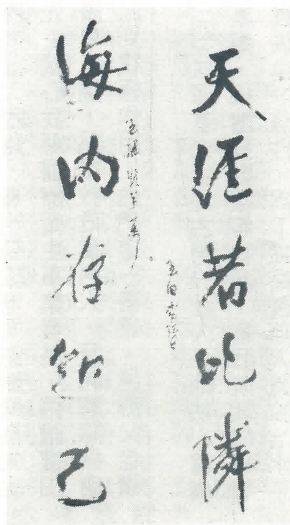 天涯若比隣
海内存知己